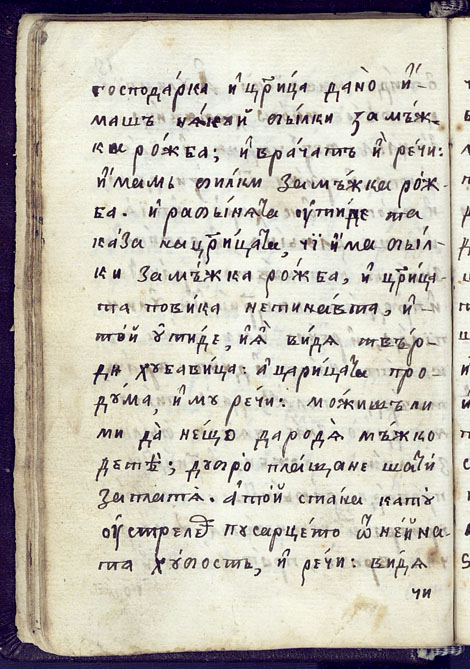 господа́рка и҆ цр҃и́ца дано̀ и҆́-
машъ нѧ́кой ѳы́лки за мѫ́ж-
ка ро́жба; и҆ вра́чатъ и҆ речи:
и҆́мамь ѳи́лки за мѫ́жка ро́ж-
ба. и҆ рабы́нѧта ѹ҆ти́де та
ка́за на цр҃и́цата, чи и҆́ма ѳы́л-
ки за мѫ́жка ро́жба, и҆ цр҃и́ца-
та пови́ка неѳина́вта, и҆
то́й ѹ҆ти́де, и҆ ѧ҆̀ ви́дѧ твъ́р-
дѣ ху́бавица: и҆ цари́цата про-
ду́ма, и҆ му ре́чи: мо́жишъ ли
ми да̀ не́що да ро́дѧ мѫ́жко
дѣте; дубро̀ пла́щане ща ти́
запла́тѧ. а҆ то́й ста́на кату̀
ѹ҆стреле́д пу сарце́то ѿ не́йна-
та ху́бость, и҆ ре́чи: ви́дѧ
чи